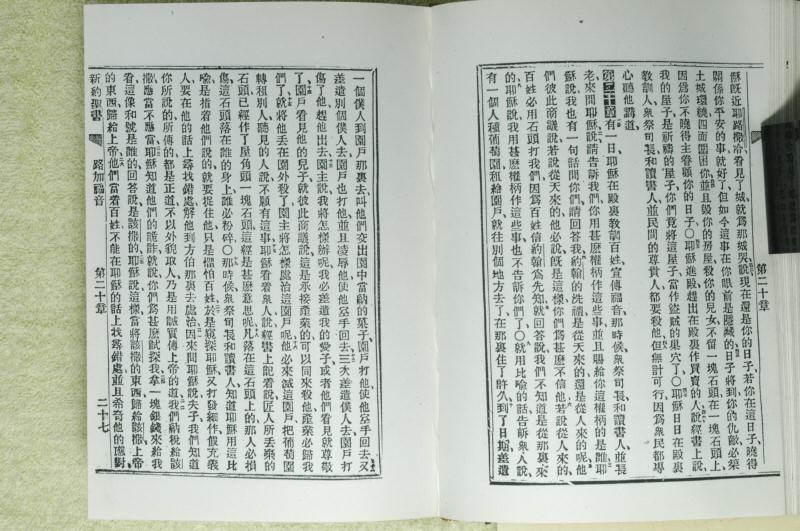 第二十章
穌旣近耶路撒冷看見了城就爲那城哭說現在還是你的日子若你在這日子曉得
關係你平安的事就好了但如今這事在你眼前是隱藏的日子將到你的仇敵必築
土城環繞四面困你並且毀你的房屋殺你的兒女不留一塊石頭在一塊石頭上
因爲你不曉得主眷顧你的日子○耶穌進殿趕出在殿裏作買賣的人說經書上說
我的屋子是祈禱的屋子你們竟將這屋子當作盜賊的巢穴了○耶穌日日在殿裏
教訓人衆祭司長和讀書人並民間的尊貴人都要殺他但無計可行因爲衆民都專
心聽他講道
第二十章 有一日耶穌在殿裏教訓百姓宣傳福音那時候衆祭司長和讀書人並長
老來問耶穌說請告訴我們你用甚麽權柄作這些事並且賜給你這權柄的是誰耶
穌說我也有一句話問你們請回答我約翰的洗禮是從天來的還是從人來的呢他
們彼此商議說若說從天來的他必說旣是這樣你們爲甚麽不信他若說從人來的
百姓必用石頭打我們因爲百姓信約翰爲先知就回答說我們不知道是從那裏來
的耶穌說我用甚麽權柄作這些事也不告訴你們了○就用比喻的話告訴衆人說
有一個人種葡萄園租給園戶就往別個地方去了在那裏住了許久到了日期差遣
一個僕人到園戶那裏去叫他們交出園中當納的菓子園戶打他使他空手回去又
差遣別個僕人去園戶也打他並且凌辱他使他空手回去三次差遣僕人去園戶打
傷了他趕他出去園主說我將怎樣辦呢我必差遣我的愛子或者他們看見就尊敬
了園戶看見他的兒子就彼此商議說這是承接產業的可以同來殺他產業必歸我
們了就將他丟在園外殺了園主將怎樣處治這園戶呢他必來滅這園戶把葡萄園
轉租別人聽見的人說不願有這事耶穌看着衆人說經書上記着說匠人所丟棄的
石頭已經作了屋角頭一塊石頭這經是甚麽意思呢凡落在這石頭上的那人必損
傷這石頭落在誰的身上誰必粉碎○那時候衆祭司長和讀書人知道耶穌用這比
喻是指着他們說的就要捉住他只是懼怕百姓於是窺探耶穌又打發細作假充義
人要在他的話上尋找錯處解他到方伯那裏去處治因來問耶穌說夫子我們知道
你所說的所傳的都是正道不以外貌取人乃是用誠實傳上帝的道我們納稅給該
撒應當不應當耶穌知道他們的詭詐就說你們爲甚麽試探我拿一塊銀錢來給我
看這像和號是誰的回答說是該撒的耶穌說這樣當將該撒的東西歸給該撒上帝
的東西歸給上帝他們當着百姓不能在耶穌的話上找錯處並且希奇他的應對
新約聖書 路加福音 第二十章 二十七